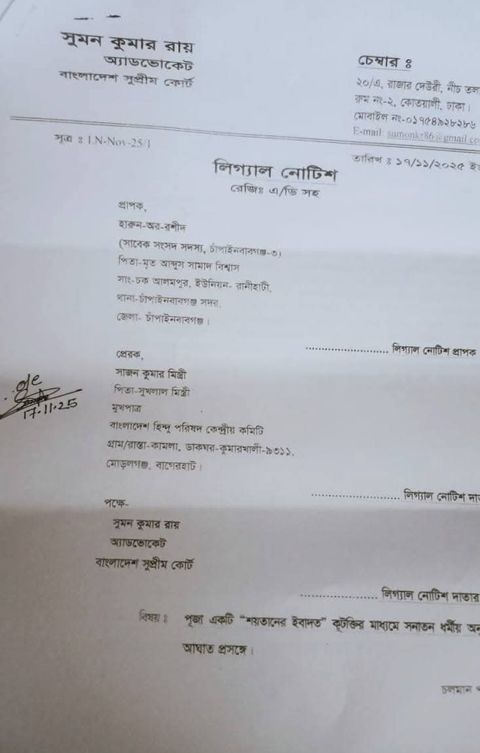 সুমন কুমার রায়
অ্যাডভোকেট
বাংলাদেশ সুপ্রীম কোর্ট
চেম্বার ঃ
২০/এ, রাজার দেউরী, নীচ তল
রুম নং-২, কোতয়ালী, ঢাকা।
মোবাইল নং-০১৭৫৪৯২৮২৮৬
E-mail: sumonkr86@gmail.co
সূত্র : LN-Nov-25/1
তারিখ : ১৭/১১/২০২৫ ইং
লিগ্যাল নোটিশ
রেজিঃ এ/ডি সহ
প্রাপক,
হারুন-অর-রশীদ
(সাবেক সংসদ সদস্য, চাঁপাইনবাবগঞ্জ-৩)
পিতা-মৃত আব্দুস সামাদ বিশ্বাস
সাং-চক আলমপুর, ইউনিয়ন- রানীহাটী,
থানা-চাঁপাইনবাবগঞ্জ সদর,
জেলা- চাঁপাইনবাবগঞ্জ।
........................ লিগ্যাল নোটিশ প্রাপক
প্রেরক,
সাজন কুমার মিস্ত্রী
পিতা-সুখলাল মিস্ত্রী
মুখপাত্র
বাংলাদেশ হিন্দু পরিষদ কেন্দ্রীয় কমিটি
গ্রাম/রাস্তা-কামলা, ডাকঘর-কুমারখালী-৯৩১১,
মোড়লগঞ্জ, বাগেরহাট।
17.11.25
........................ লিগ্যাল নোটিশ দা
পক্ষে-
সুমন কুমার রায়
অ্যাডভোকেট
বাংলাদেশ সুপ্রীম কোর্ট
........................ লিগ্যাল নোটিশ দাতার
বিষয় : পূজা একটি “শয়তানের ইবাদত” কূটক্তির মাধ্যমে সনাতন ধর্মীয় অনু
আঘাত প্রসঙ্গে।
চলমান